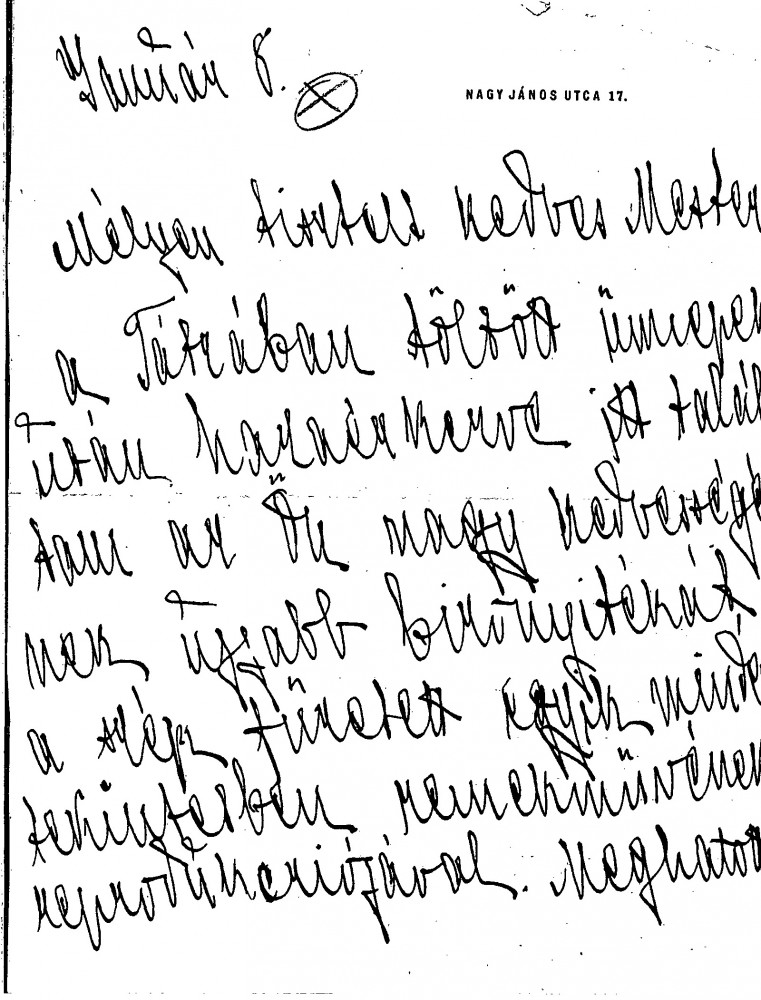 Január 8.
NAGY JÁNOS UTCA 17.
Mélyen tisztelt kedves Mester
a Tátrában töltött ünnepek
után hazaérkezve itt talál
tam az Ön nagy kedvességé
nek újabb bizonyítékát
a szép füzetet egyik minde
tekintetben remekművének
reprodukciójával. Meghatot